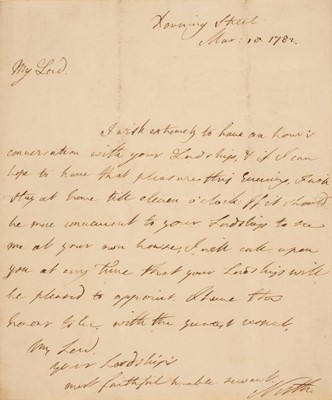 Downing Street
Mar: 10 1782.
My Lord.
I wish extremely to have an hour's
conversation with your Lordship, & if I can
hope to have that pleasure this Evening, I will
stay at home till eleven o'clock. If it should
be more convenient to your Lordship to see
me at your own house, I will call upon
you at any time that your Lordship will
be pleased to appoint. I have the
honor to be, with the greatest respect,
My Lord,
your Lordship's
most faithful humble servant
North